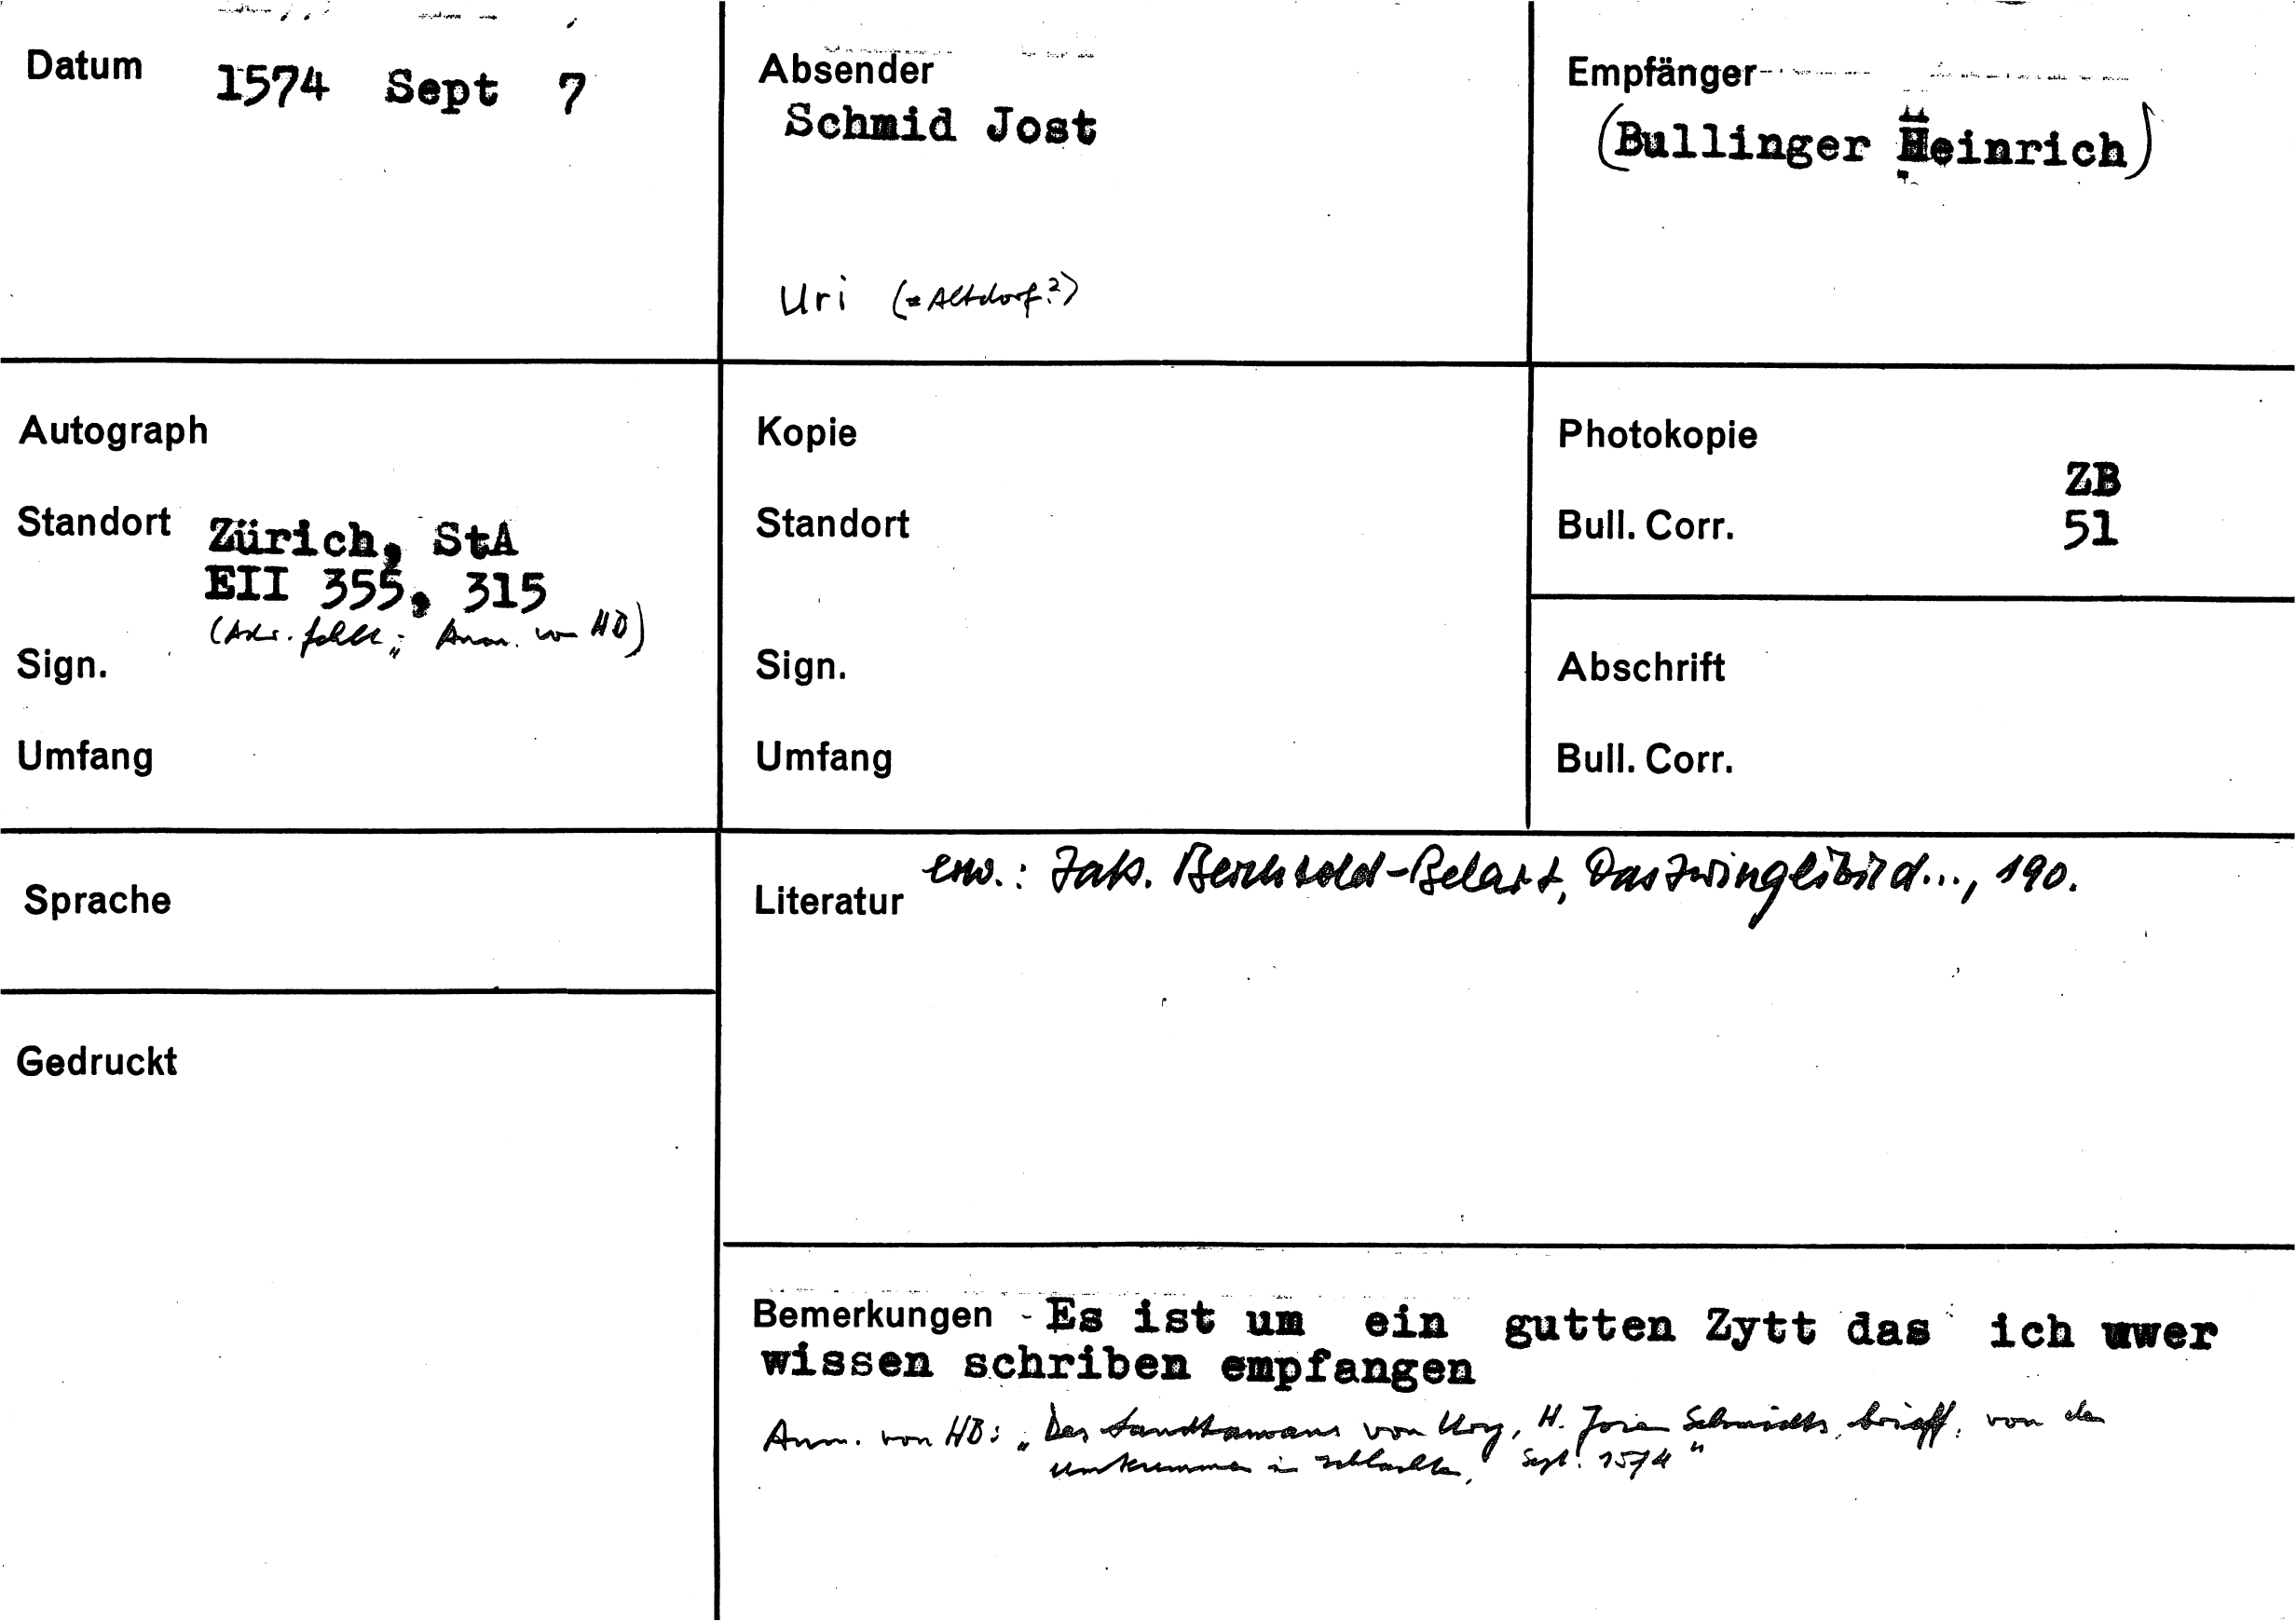 Datum 1574 Sept 7
Absender
Schmid Jost
Uri (= Altdorf?)
Empfänger
(Bullinger Heinrich)
Autograph
Standort Zürich, StA
EII 355, 315
(Adr. fehlt; Anm. von HB)
Sign.
Umfang
Kopie
Standort
Sign.
Umfang
Photokopie
ZB
Bull. Corr. 51
Abschrift
Bull. Corr.
Sprache
Literatur erw.: Jak. Berchtold-Belart, Das Zwinglibild..., 190.
Gedruckt
Bemerkungen - Es ist um ein gutten Zytt das ich uwer
wissen schriben empfangen
Anm. von HB: „Des Landtammans von Ury, H. Josen Schmidts brieff, von den
umkummen in Sept. 1574"